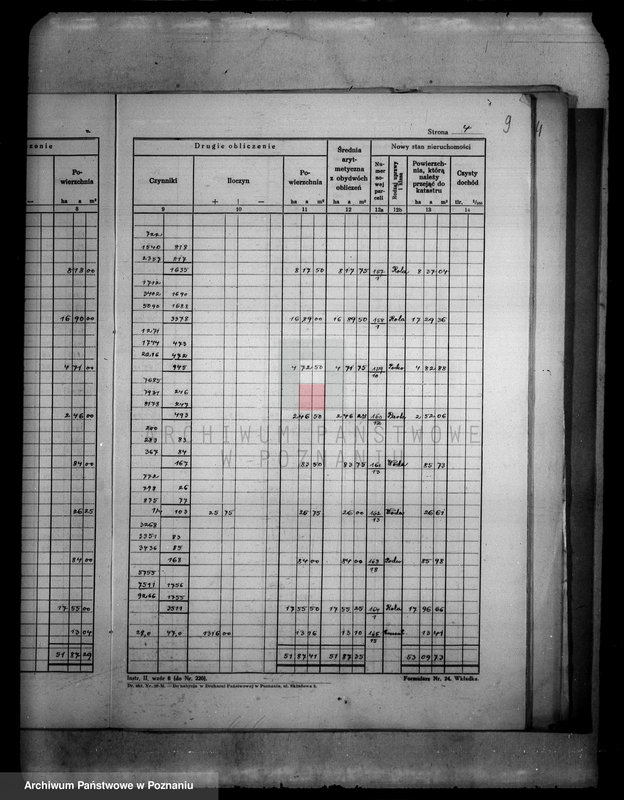 Strona 4
9
Drugie obliczenie
Średnia arytmetyczna z obydwóch obliczeń
Nowy stan nieruchomości
Powierzchnia
Czynniki
Iloczyn
Powierzchnia
Numer nowej parceli
Rodzaj uprawy i klasa
Powierzchnia, którą należy przejąć do katastru
Czysty dochód
ha a m²
+ | —
ha a m²
ha a m²
ha a m²
tlr.
8 9 10 11 12 12a 12b 13 14
722
1540 818
2357 817
8 18 00 1635 8 17 50 8 17 75 157/1 Rola 8 37 04
1712
3402 1690
5090 1688
16 90 00 3378 16 89 00 16 89 50 158/1 Rola 17 29 36
1271
1744 473
2216 472
4 71 00 945 4 72 50 4 71 75 4 82 88
7685
7931 246
8178 247
2 46 00 493 2 46 50 2 46 25 2 52 06
200
283 83
367 84
84 00 167 83 50 83 75 161 Woda 85 73
772
798 26
875 77
26 25 103 25 75 26 75 26 00 162 Woda 26 61
3268
3351 83
3436 85
84 00 168 84 00 84 00 163 85 98
5755
7511 1756
9266 1755
17 55 00 3511 17 55 50 17 55 25 164/1 Rola 17 96 66
13 04 28,0 47,0 1316 00 13 16 13 10 165 13 41
51 87 29 51 87 41 51 87 35 53 09 73
Instr. II, wzór 6 (do Nr. 220).
Formularz Nr. 24. Wkładka.
ARCHIWUM PAŃSTWOWE
W POZNANIU
Archiwum Państwowe w Poznaniu